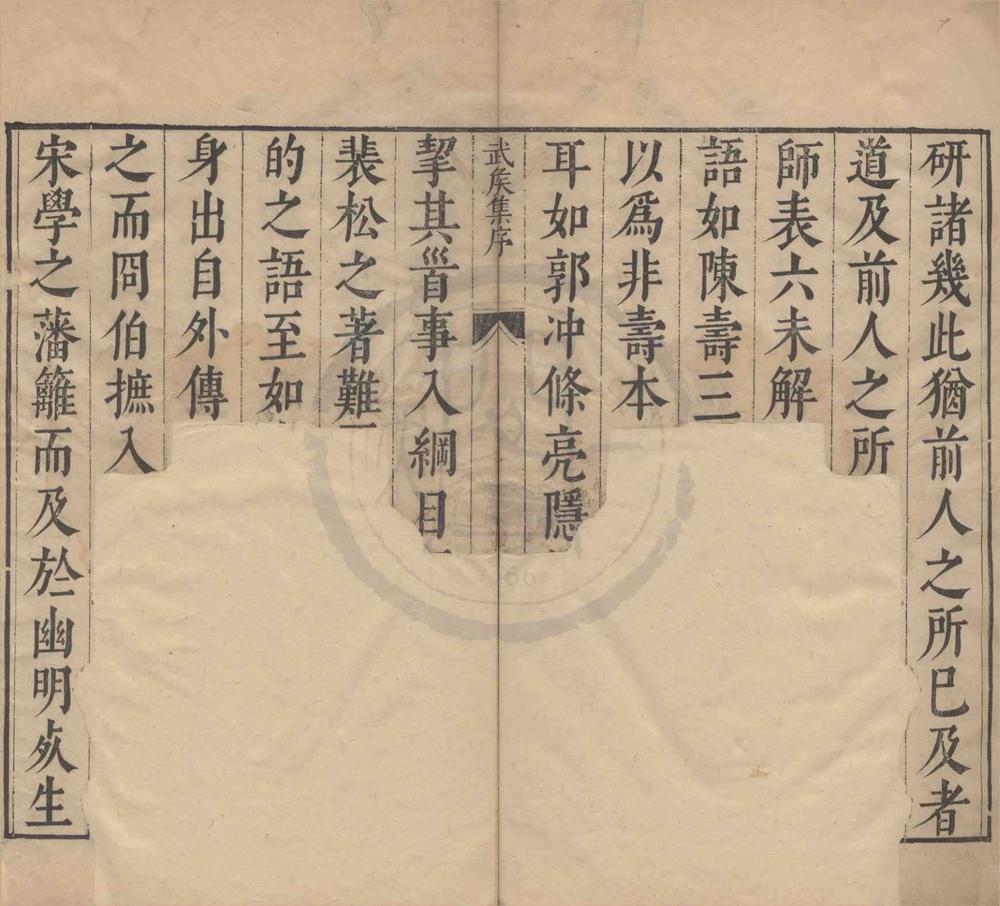 研諸幾此猶前人之所已及者
道及前人之所
師表六未解
語如陳壽三
以爲非壽本
耳如郭冲條亮隱
武矦集序
挈其首事入綱目
裴松之著難
的之語至如
身出自外傳
之而冏伯摭入
宋學之藩籬而及於幽明死生